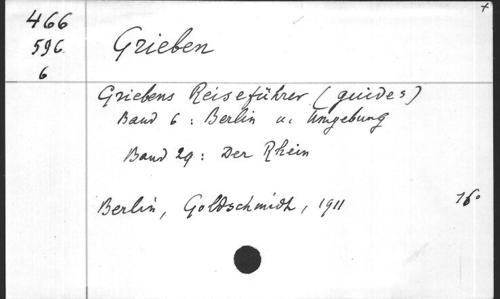 466
596
6
Grieben
Griebens Reiseführer (guides)
Band 6 : Berlin u. Umgebung
Band 29 : Der Rhein
Berlin, Goldschmidt, 1911
16°